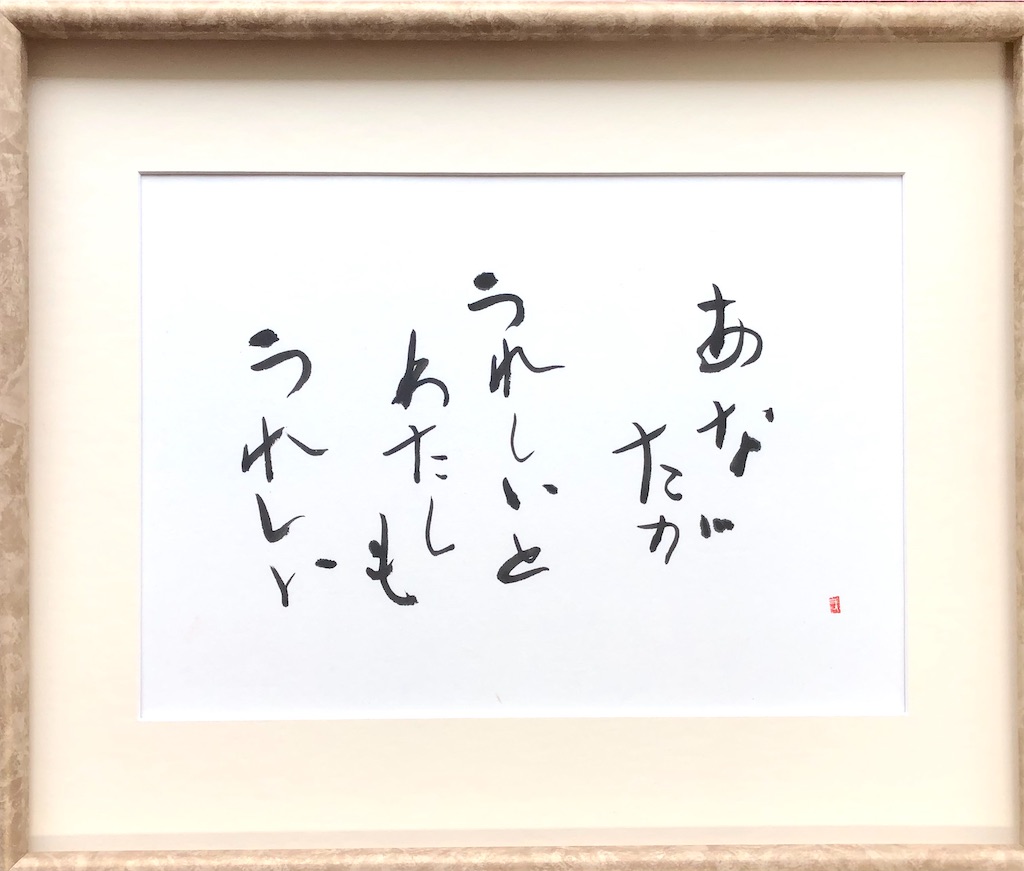 あな
たが
うれしいと
わたし
も
うれしい